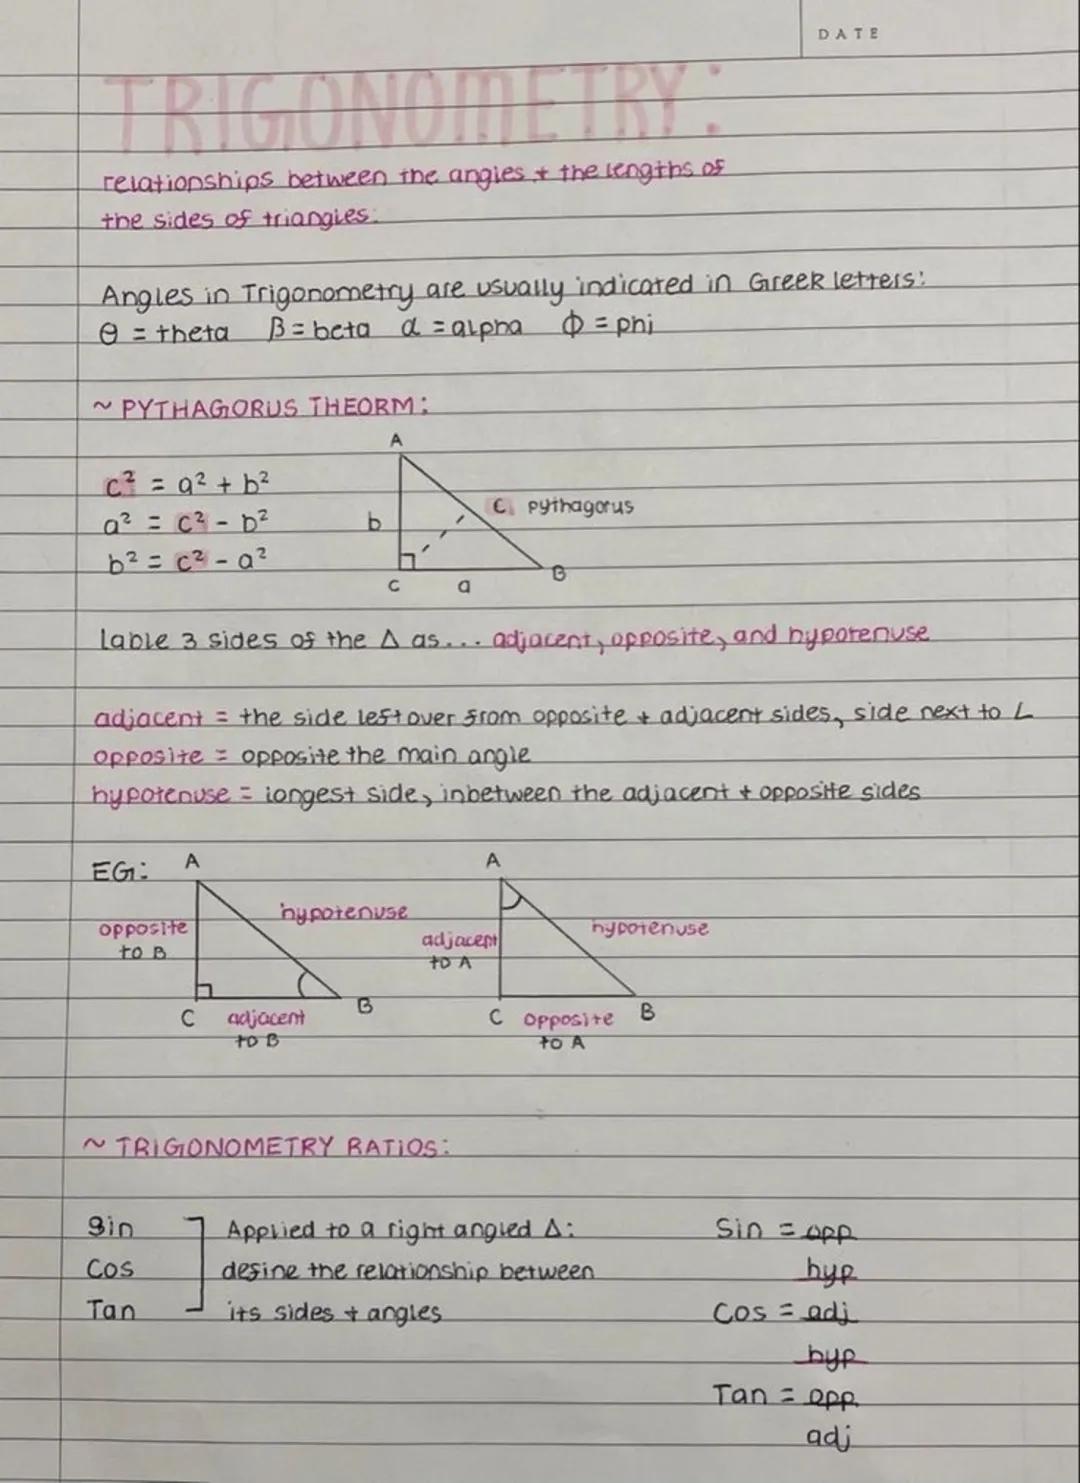 DATE
TRIGONOMETRY:
relationships between the angles + the lengths of
the sides of triangles.
Angles in Trigonometry are usually indicated in Greek letters:
θ = theta β = beta α = alpha Φ = phi
~ PYTHAGORUS THEORM:
A
c² = a² + b²
c pythagorus
a² = c² - b²
b
b² = c² - a²
B
C a
lable 3 sides of the Δ as... adjacent, opposite, and hypotenuse
adjacent = the side leftover from opposite + adjacent sides, side next to ∠
opposite = opposite the main angle
hypotenuse = longest side, inbetween the adjacent + opposite sides
EG: A A
hypotenuse
opposite
to B
hypotenuse
adjacent
to A
B
C adjacent
to B
C opposite B
to A
~ TRIGONOMETRY RATIOS:
Sin Applied to a right angled Δ: Sin = opp
Cos define the relationship between hyp
Tan its sides + angles Cos = adj
hyp
Tan = opp
adj